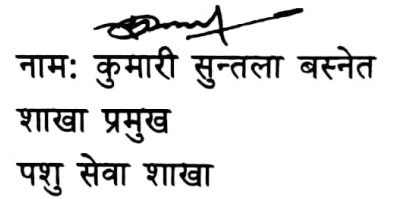 नाम: कुमारी सुन्तला बस्नेत
शाखा प्रमुख
पशु सेवा शाखा